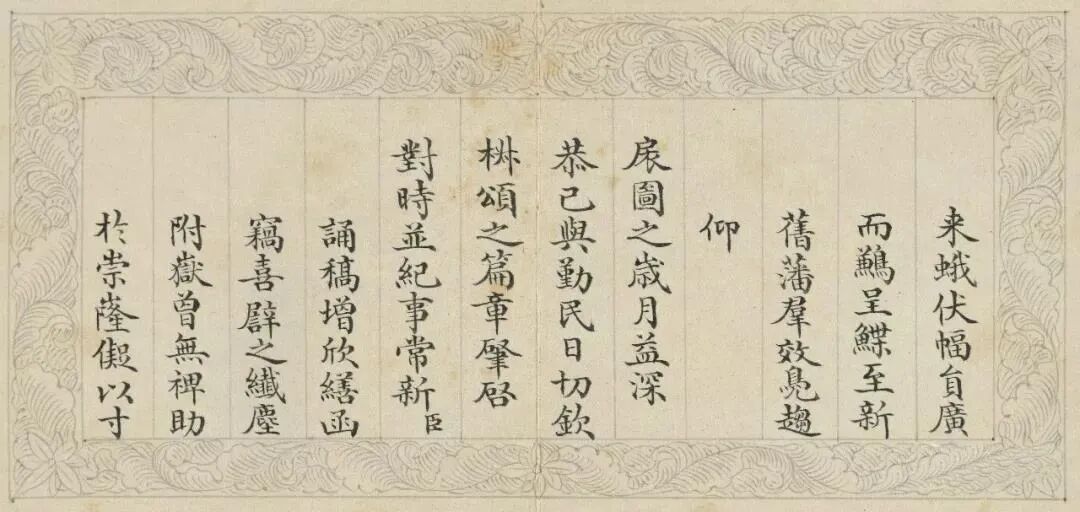 来蛾伏幅員廣
而鷀呈鰈至新
舊藩羣效鳧趨
仰
扆圖之歲月益深
恭己與勤民日切欽
棥頌之篇章肇啓
對時並紀事常新臣
誦稿增欣繕函
竊喜辟之纖塵
附嶽曾無裨助
於崇隆儗以寸